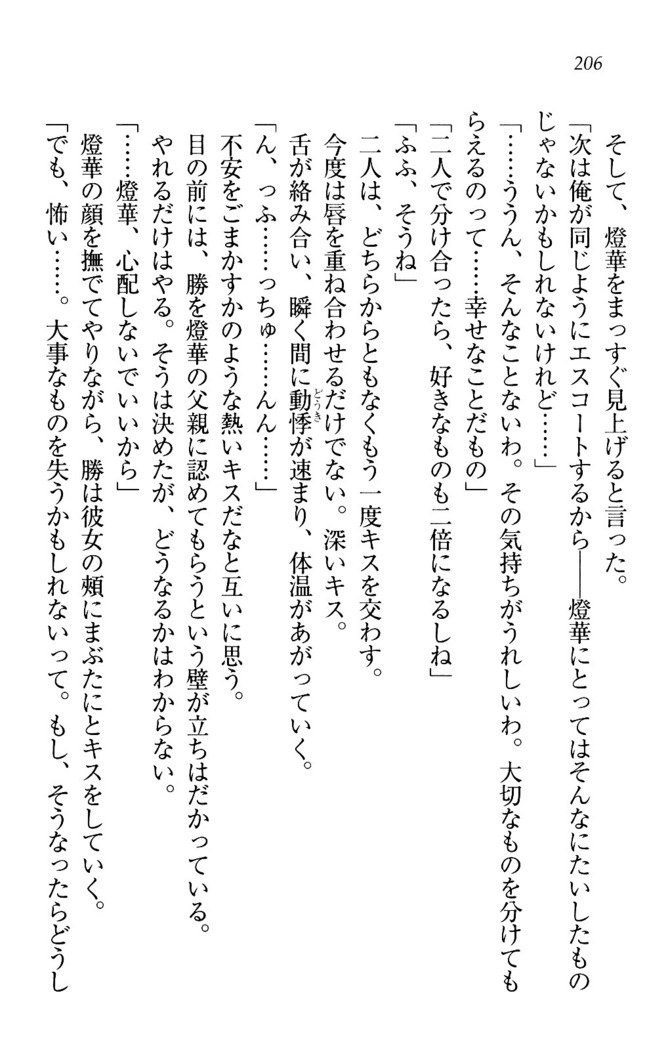 206
そして、燈華をまっすぐ見上げると言った。
「次は俺が同じようにエスコートするから――燈華にとってはそんなにたいしたもの
じゃないかもしれないけれど……」
「……ううん、そんなことないわ。その気持ちがうれしいわ。大切なものを分けても
らえるのって……幸せなことだもの」
「二人で分け合ったら、好きなものも二倍になるしね」
「ふふ、そうね」
二人は、どちらからともなくもう一度キスを交わす。
今度は唇を重ね合わせるだけでない。深いキス。
舌が絡み合い、瞬く間に動悸どうきが速まり、体温があがっていく。
「ん、っふ……っちゅ……んん……」
不安をごまかすかのような熱いキスだなと互いに思う。
目の前には、勝を燈華の父親に認めてもらうという壁が立ちはだかっている。
やれるだけはやる。そうは決めたが、どうなるかはわからない。
「……燈華、心配しないでいいから」
燈華の顔を撫でてやりながら、勝は彼女の頰にまぶたにとキスをしていく。
「でも、怖い……。大事なものを失うかもしれないって。もし、そうなったらどうし